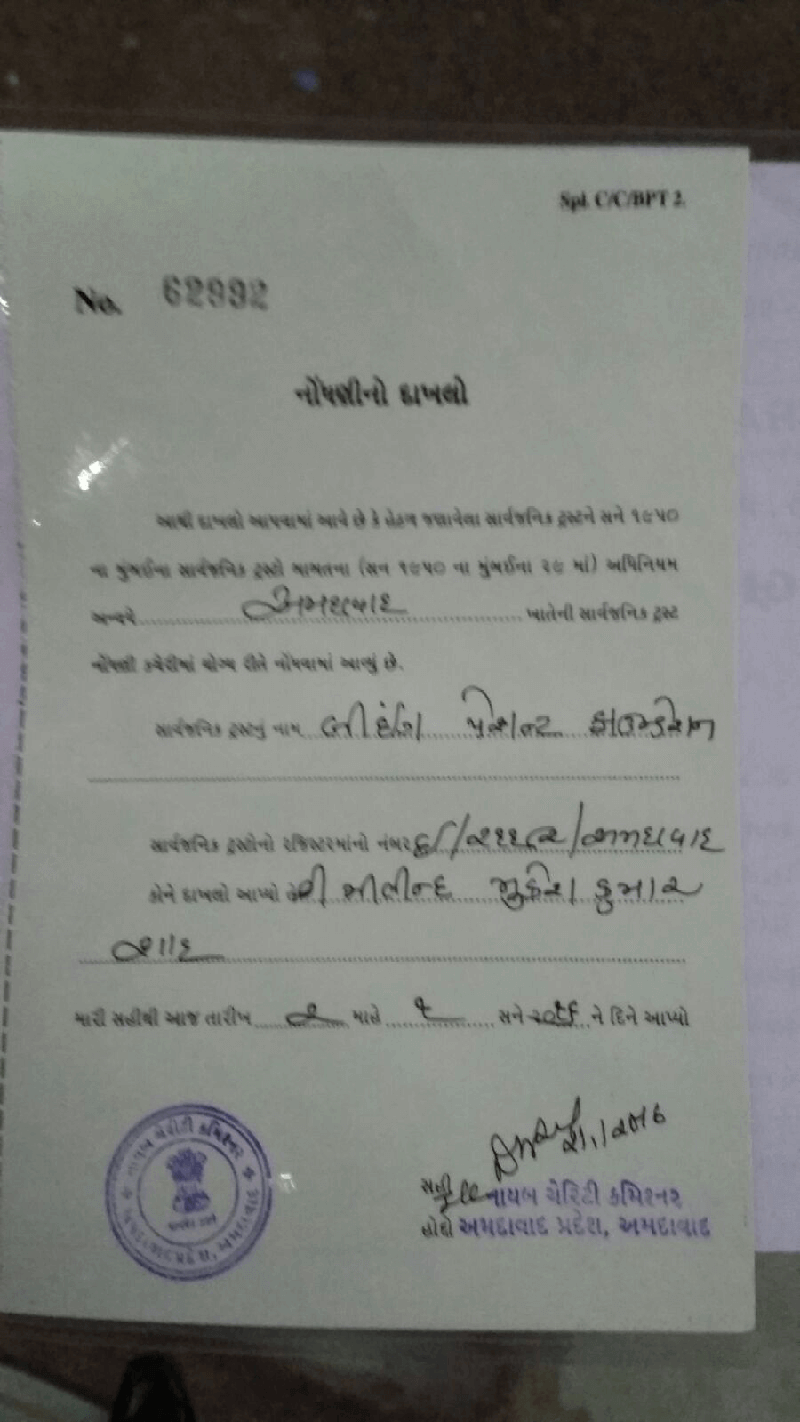 Spl. C/C/BPT 2.
No. 62992
નોંધણીનો દાખલો
આથી દાખલો આપવામાં આવે છે કે હેઠળ જણાવેલા સાર્વજનિક ટ્રસ્ટને સને ૧૯૫૦
ના મુંબઈના સાર્વજનિક ટ્રસ્ટો બાબતના (સન ૧૯૫૦ ના મુંબઈના ૨૯ માં) અધિનિયમ
અન્વયે અમદાવાદ ખાતેની સાર્વજનિક ટ્રસ્ટ
નોંધણી કચેરીમાં યોગ્ય રીતે નોંધવામાં આવ્યું છે.
સાર્વજનિક ટ્રસ્ટનું નામ પેશન્ટ ફાઉન્ડેશન
સાર્વજનિક ટ્રસ્ટોનો રજિસ્ટરમાંનો નંબર /અમદાવાદ
કોને દાખલો આપ્યો શ્રી મીલીન્દ મુકેશ કુમાર
શાહ
મારી સહીથી આજ તારીખ ૨ માહે ૧ સને ૨૦૧૬ ને દિને આપ્યો
નાયબ ચેરિટી કમિશ્નર
સહી નાયબ ચેરિટી કમિશ્નર
હોદ્દો અમદાવાદ પ્રદેશ, અમદાવાદ